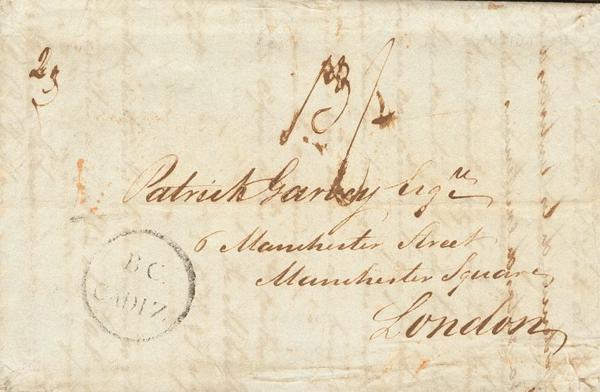 23
Patrick Garvey Esqre
6 Manchester Street
Manchester Square
London
B C.
CADIZ.